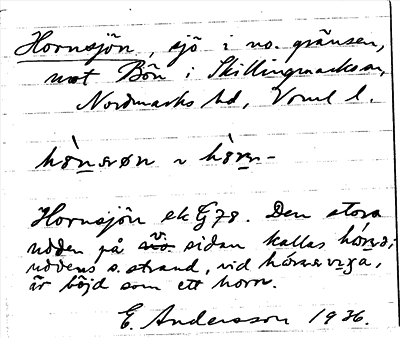 Hornsjön, sjö i no. gränsen,
mot Bön i Skillingmarks sn,
Nordmarks hd, Vrml l.
Hornsjön ek G 78. Den stora
udden på v. sidan kallas
uddens s. strand, vid
är böjd som ett horn.
E. Andersson 1936.